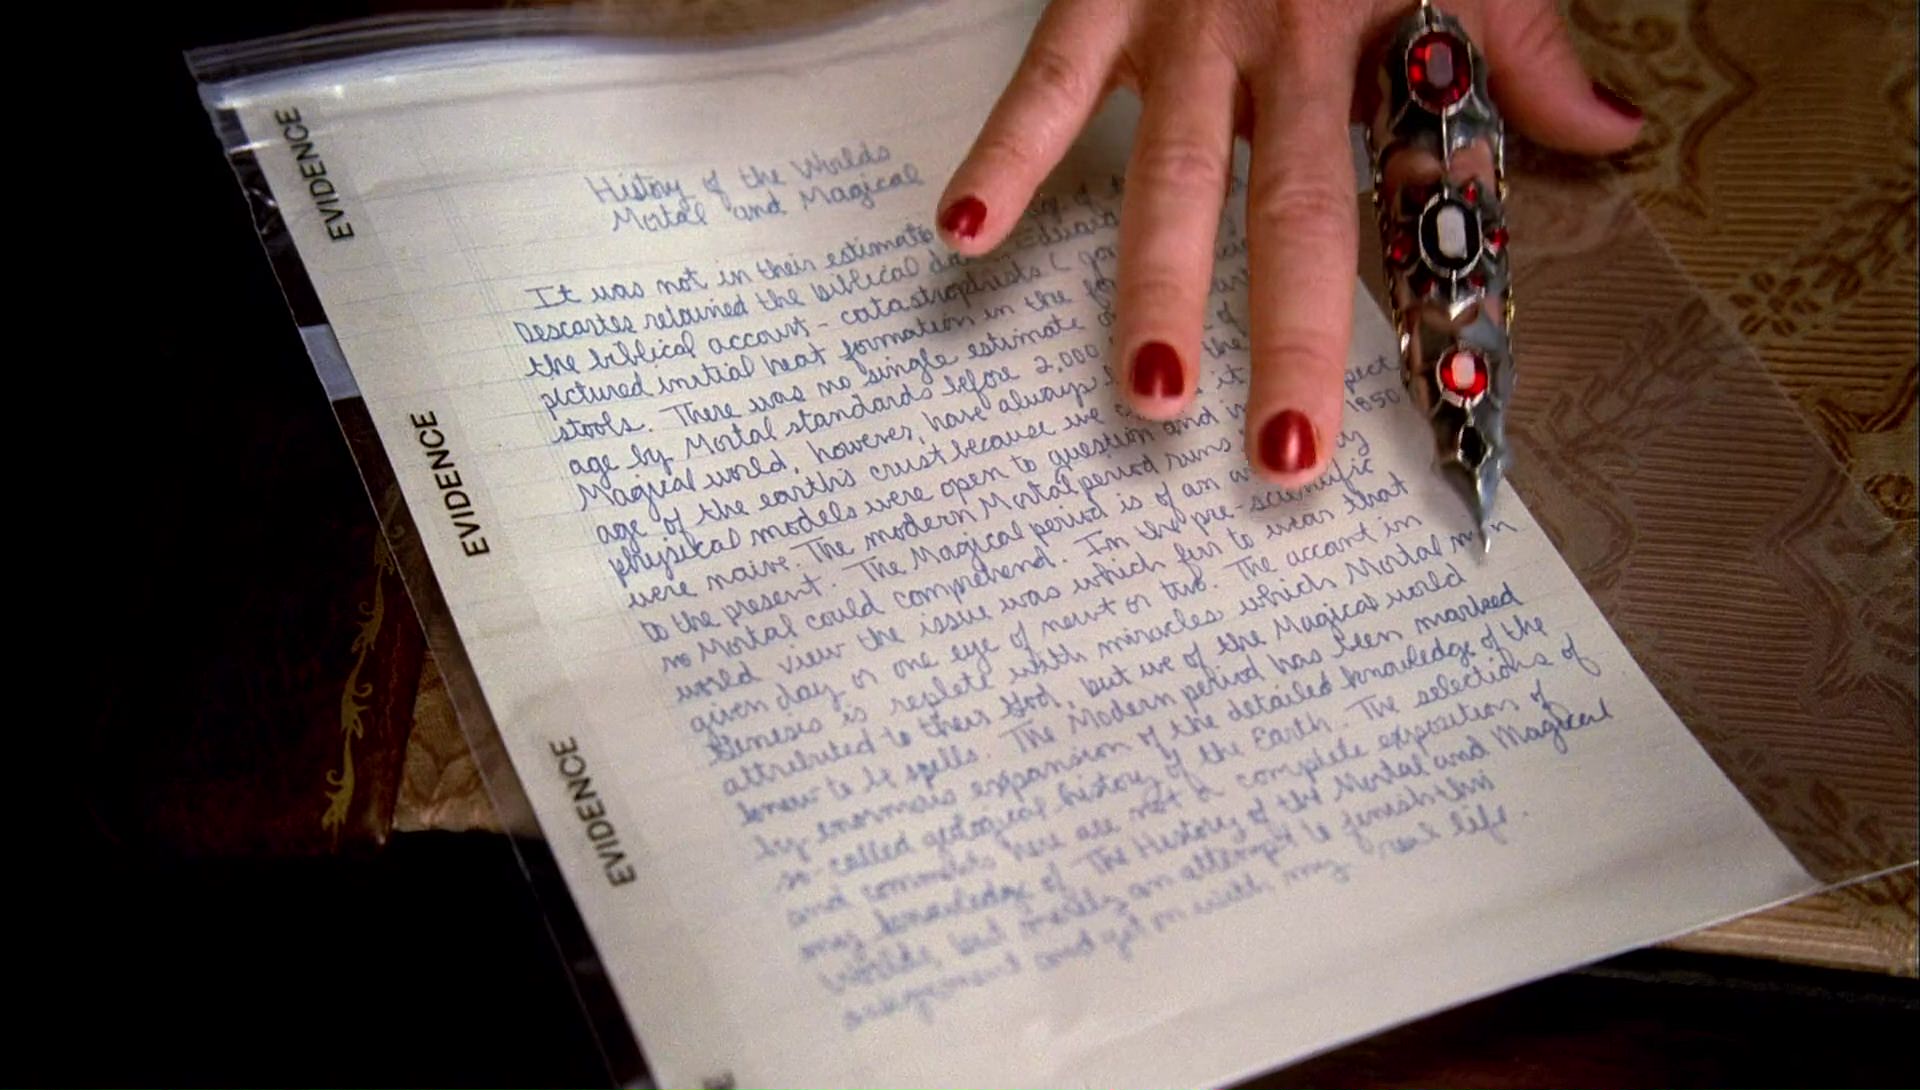 EVIDENCE
EVIDENCE
EVIDENCE
History of the Worlds
Mortal and Magical
It was not in their estimate of
Descartes retained the biblical
the biblical account - catastrophists (
pictured initial heat formation in the
stools. There was no single estimate
age by Mortal standards before 2,000 the
Magical world, however, have always it
age of the earth's crust because we
physical models were open to question and 1850
were naive. The modern Mortal period runs
to the present. The Magical period is of an
no Mortal could comprehend. In the pre-scientific
world view the issue was which firs to wear that
given day or one eye of newt or two. The account in
Genesis is replete with miracles which Mortal
attributed to their God, but we of the Magical world
knew to be spells. The Modern period has been marked
by enormous expansion of the detailed knowledge of the
so-called geological history of the Earth. The selections of
and comments here are not a complete exposition of
my knowledge of The History of the Mortal and Magical
Worlds but merely an attempt to finish this
assignment and get on with my real life.